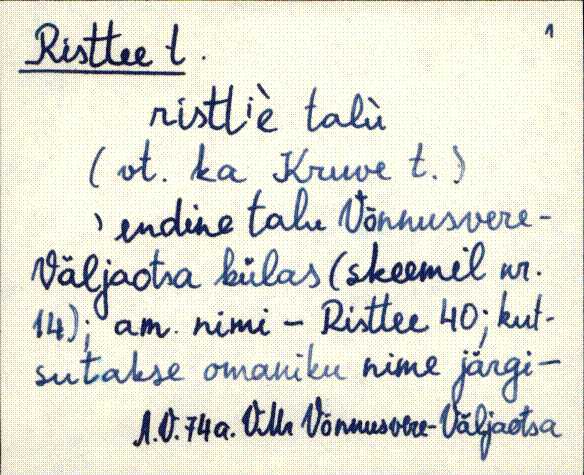 Risttee t. 1
ristti̬è talù
(vt. ka Kruve t.)
, endine talu Võnnusvere-
Väljaotsa külas (skeemil nr.
14); am. nimi – Risttee 40; kut-
sutakse omaniku nime järgi –
A.V. 74a. VMr Võnnusvere-Väljaotsa